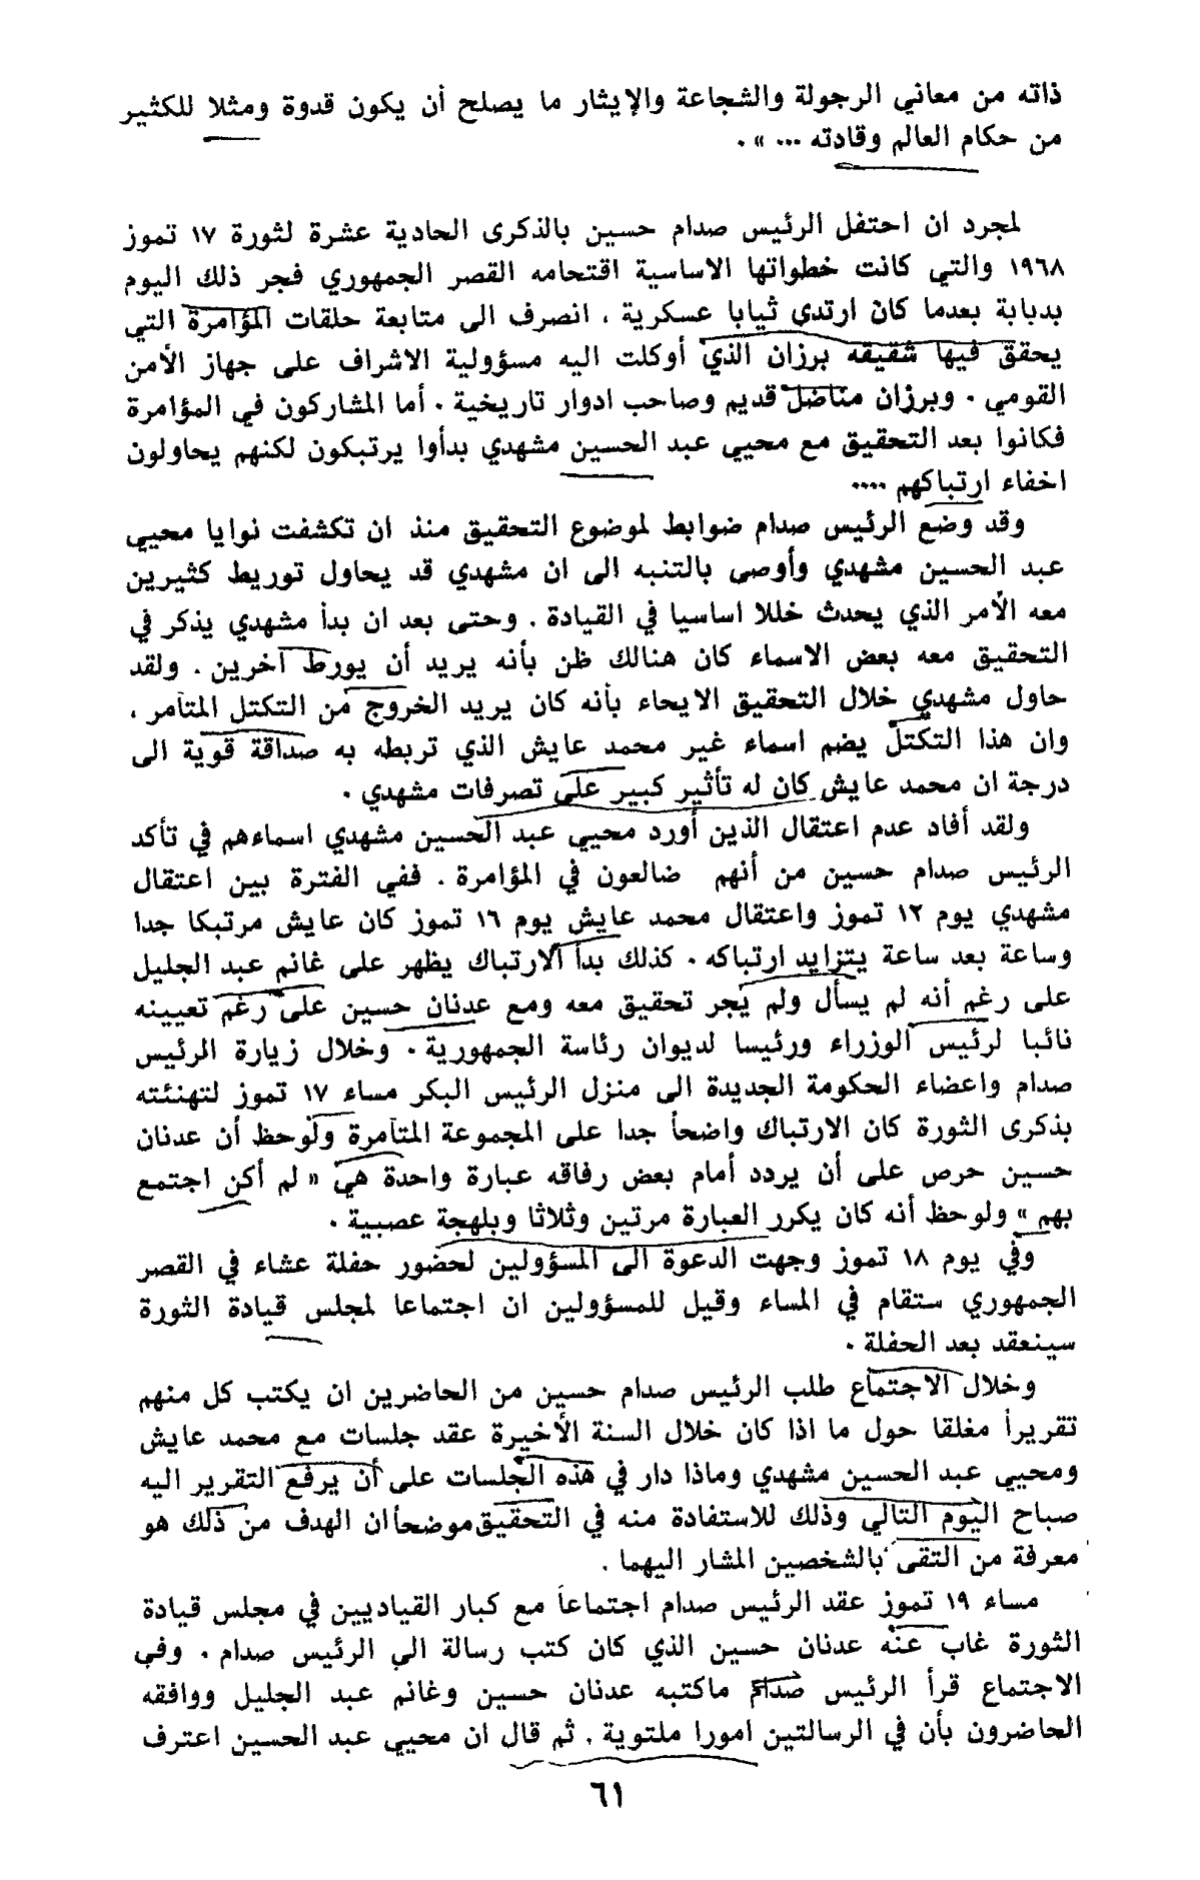 ذاته من معاني الرجولة والشجاعة والإيثار ما يصلح أن يكون قدوة ومثلا للكثير
من حكام العالم وقادته ... » .
لمجرد ان احتفل الرئيس صدام حسين بالذكرى الحادية عشرة لثورة ١٧ تموز
١٩٦٨ والتي كانت خطواتها الاساسية اقتحامه القصر الجمهوري فجر ذلك اليوم
بدبابة بعدما كان ارتدى ثيابا عسكرية ، انصرف الى متابعة حلقات المؤامرة التي
يحقق فيها شقيقه برزان الذي أوكلت اليه مسؤولية الاشراف على جهاز الأمن
القومي . وبرزان مناضل قديم وصاحب ادوار تاريخية . أما المشاركون في المؤامرة
فكانوا بعد التحقيق مع محيي عبد الحسين مشهدي بدأوا يرتبكون لكنهم يحاولون
اخفاء ارتباكهم ....
وقد وضع الرئيس صدام ضوابط لموضوع التحقيق منذ ان تكشفت نوايا محيي
عبد الحسين مشهدي وأوصى بالتنبه الى ان مشهدي قد يحاول توريط كثيرين
معه الأمر الذي يحدث خللا اساسيا في القيادة . وحتى بعد ان بدأ مشهدي يذكر في
التحقيق معه بعض الاسماء كان هنالك ظن بأنه يريد أن يورط آخرين . ولقد
حاول مشهدي خلال التحقيق الايحاء بأنه كان يريد الخروج من التكتل المتآمر ،
وان هذا التكتل يضم اسماء غير محمد عايش الذي تربطه به صداقة قوية الى
درجة ان محمد عايش كان له تأثير كبير على تصرفات مشهدي .
ولقد أفاد عدم اعتقال الذين أورد محيي عبد الحسين مشهدي اسماءهم في تأكد
الرئيس صدام حسين من أنهم ضالعون في المؤامرة . ففي الفترة بين اعتقال
مشهدي يوم ١٢ تموز واعتقال محمد عايش يوم ١٦ تموز كان عايش مرتبكا جدا
وساعة بعد ساعة يتزايد ارتباكه . كذلك بدأ الارتباك يظهر على غانم عبد الجليل
على رغم أنه لم يسأل ولم يجر تحقيق معه ومع عدنان حسين على رغم تعيينه
نائبا لرئيس الوزراء ورئيسا لديوان رئاسة الجمهورية . وخلال زيارة الرئيس
صدام واعضاء الحكومة الجديدة الى منزل الرئيس البكر مساء ١٧ تموز لتهنئته
بذكرى الثورة كان الارتباك واضحأ جدا على المجموعة المتآمرة ولوحظ أن عدنان
حسين حرص على أن يردد أمام بعض رفاقه عبارة واحدة هي « لم أكن اجتمع
بهم » ولوحظ أنه كان يكرر العبارة مرتين وثلاثا وبلهجة عصبية .
وفي يوم ١٨ تموز وجهت الدعوة الى المسؤولين لحضور حفلة عشاء في القصر
الجمهوري ستقام في المساء وقيل للمسؤولين ان اجتماعا لمجلس قيادة الثورة
سينعقد بعد الحفلة .
وخلال الاجتماع طلب الرئيس صدام حسين من الحاضرين ان يكتب كل منهم
تقريرأ مغلقا حول ما اذا كان خلال السنة الأخيرة عقد جلسات مع محمد عايش
ومحيي عبد الحسين مشهدي وماذا دار في هذه الجلسات على أن يرفع التقرير اليه
صباح اليوم التالي وذلك للاستفادة منه في التحقيق موضحأ ان الهدف من ذلك هو
معرفة من التقى بالشخصين المشار اليهما .
مساء ١٩ تموز عقد الرئيس صدام اجتماعأ مع كبار القياديين في مجلس قيادة
الثورة غاب عنه عدنان حسين الذي كان كتب رسالة الى الرئيس صدام . وفي
الاجتماع قرأ الرئيس صدام ماكتبه عدنان حسين وغانم عبد الجليل ووافقه
الحاضرون بأن في الرسالتين امورا ملتوية . ثم قال ان محيي عبد الحسين اعترف
٦١